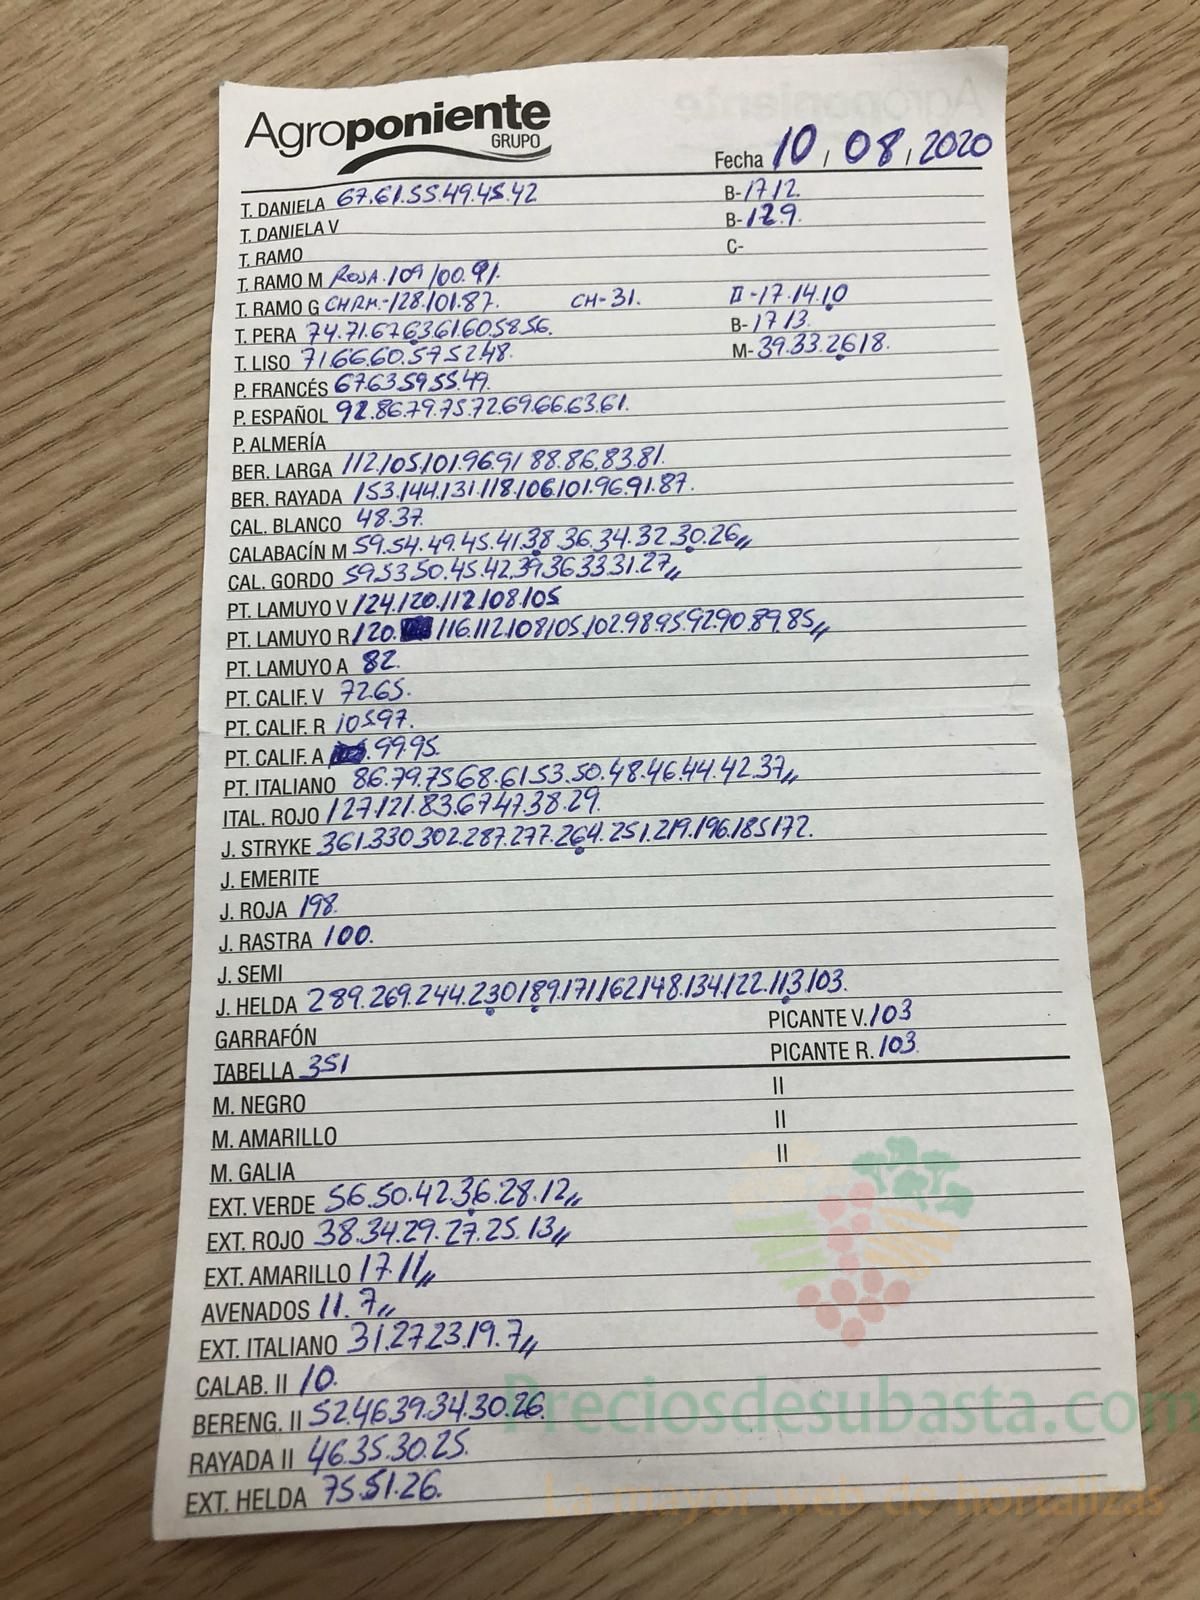 Agroponiente
GRUPO
Fecha 10 / 08 / 2020
T. DANIELA 67.61.55.49.45.42 B-17.12.
T. DANIELA V B-12.9.
T. RAMO C-
T. RAMO M ROJA.109/100.91.
T. RAMO G CHRM.-128.101.87. CH-31. II-17.14.10
T. PERA 74.71.67.63.61.60.58.56. B-17.13.
T. LISO 71.66.60.57.52.48. M-39.33.26.18.
P. FRANCÉS 67.63.59.55.49.
P. ESPAÑOL 92.86.79.75.72.69.66.63.61.
P. ALMERÍA
BER. LARGA 112.105.101.96.91.88.86.83.81.
BER. RAYADA 153.144.131.118.106.101.96.91.87.
CAL. BLANCO 48.37.
CALABACÍN M 59.54.49.45.41.38.36.34.32.30.26,,
CAL. GORDO 59.53.50.45.42.39.36.33.31.27,,
PT. LAMUYO V 124.120.112.108.105
PT. LAMUYO R 120. 116.112.108.105.102.98.95.92.90.89.85,,
PT. LAMUYO A 82.
PT. CALIF. V 72.65.
PT. CALIF. R 105.97.
PT. CALIF. A .99.95.
PT. ITALIANO 86.79.75.68.61.53.50.48.46.44.42.37,,
ITAL. ROJO 127.121.83.67.47.38.29.
J. STRYKE 361.330.302.287.277.264.251.219.196.185.172.
J. EMERITE
J. ROJA 198.
J. RASTRA 100.
J. SEMI
J. HELDA 289.269.244.230.189.171.162.148.134.122.113.103.
GARRAFÓN PICANTE V. 103
TABELLA 351 PICANTE R. 103.
M. NEGRO II
M. AMARILLO II
M. GALIA II
EXT. VERDE 56.50.42.36.28.12,,
EXT. ROJO 38.34.29.27.25.13,,
EXT. AMARILLO 17.11,,
AVENADOS 11.7,,
EXT. ITALIANO 31.27.23.19.7,,
CALAB. II 10.
BERENG. II 52.46.39.34.30.26.
RAYADA II 46.35.30.25.
EXT. HELDA 75.51.26.
Preciosdesubasta.com
La mayor web de hortalizas